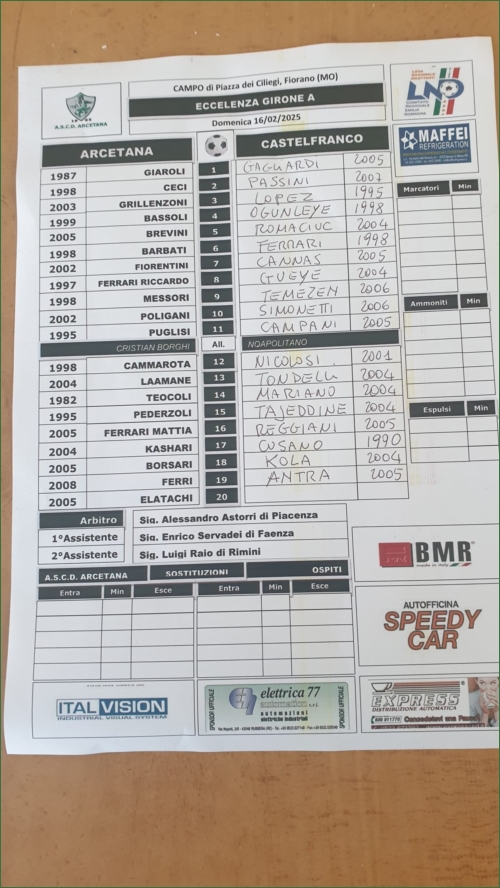 CAMPO di Piazza dei Ciliegi, Fiorano (MO)
ECCELENZA GIRONE A
Domenica 16/02/2025
A.S.C.D. ARCETANA
LEGA NAZIONALE DILETTANTI
LND
COMITATO REGIONALE EMILIA ROMAGNA
MAFFEI
REFRIGERATION
ARCETANA CASTELFRANCO
1987 GIAROLI 1 GAGLIARDI 2005
1998 CECI 2 PASSINI 2007
2003 GRILLENZONI 3 LOPEZ 1995
1999 BASSOLI 4 OGUNLEYE 1998
2005 BREVINI 5 ROMACIUC 2004
1998 BARBATI 6 FERRARI 1998
2002 FIORENTINI 7 CANNAS 2005
1997 FERRARI RICCARDO 8 GUEYE 2004
1998 MESSORI 9 TEMEZEN 2006
2002 POLIGANI 10 SIMONETTI 2006
1995 PUGLISI 11 CAMPANI 2005
CRISTIAN BORGHI All. NOAPOLITANO
1998 CAMMAROTA 12 NICOLOSI 2001
2004 LAAMANE 13 TONDELLI 2004
1982 TEOCOLI 14 MARIANO 2004
1995 PEDERZOLI 15 TAJEDDINE 2004
2005 FERRARI MATTIA 16 REGGIANI 2005
2004 KASHARI 17 CUSANO 1990
2005 BORSARI 18 KOLA 2004
2008 FERRI 19 ANTRA 2005
2005 ELATACHI 20
Marcatori Min
Ammoniti Min
Espulsi Min
Arbitro Sig. Alessandro Astorri di Piacenza
1°Assistente Sig. Enrico Servadei di Faenza
2°Assistente Sig. Luigi Raio di Rimini
A.S.C.D. ARCETANA SOSTITUZIONI OSPITI
Entra Min Esce Entra Min Esce
BMR
made in Italy
AUTOFFICINA
SPEEDY
CAR
ITALVISION
INDUSTRIAL VISUAL SYSTEM
SPONSOR UFFICIALE
elettrica 77
automation s.r.l.
automazioni
elettriche industriali
SPONSOR UFFICIALE
EXPRESS
DISTRIBUZIONE AUTOMATICA